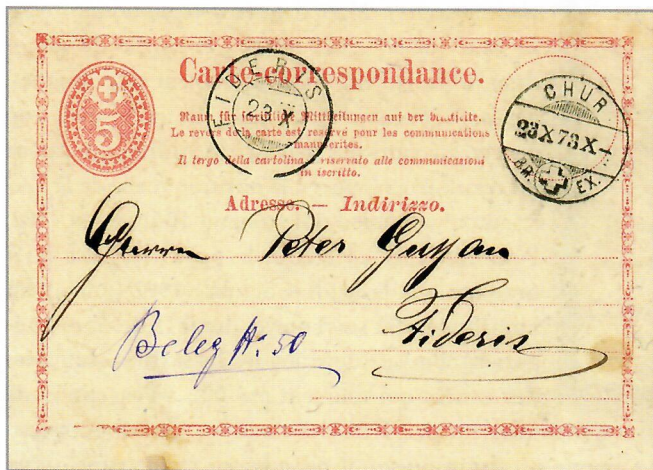 Carte-correspondance.
5
FIDERIS
23 X
CHUR
23 X 73 X-1
BR. EX.
Raum für schriftliche Mittheilungen auf der Rückseite.
Le revers de la carte est réservé pour les communications
manuscrites.
Il tergo della cartolina è riservato alle communicazioni
in iscritto.
Adresse. — Indirizzo.
Herrn Peter
Fideris
Beleg No. 50